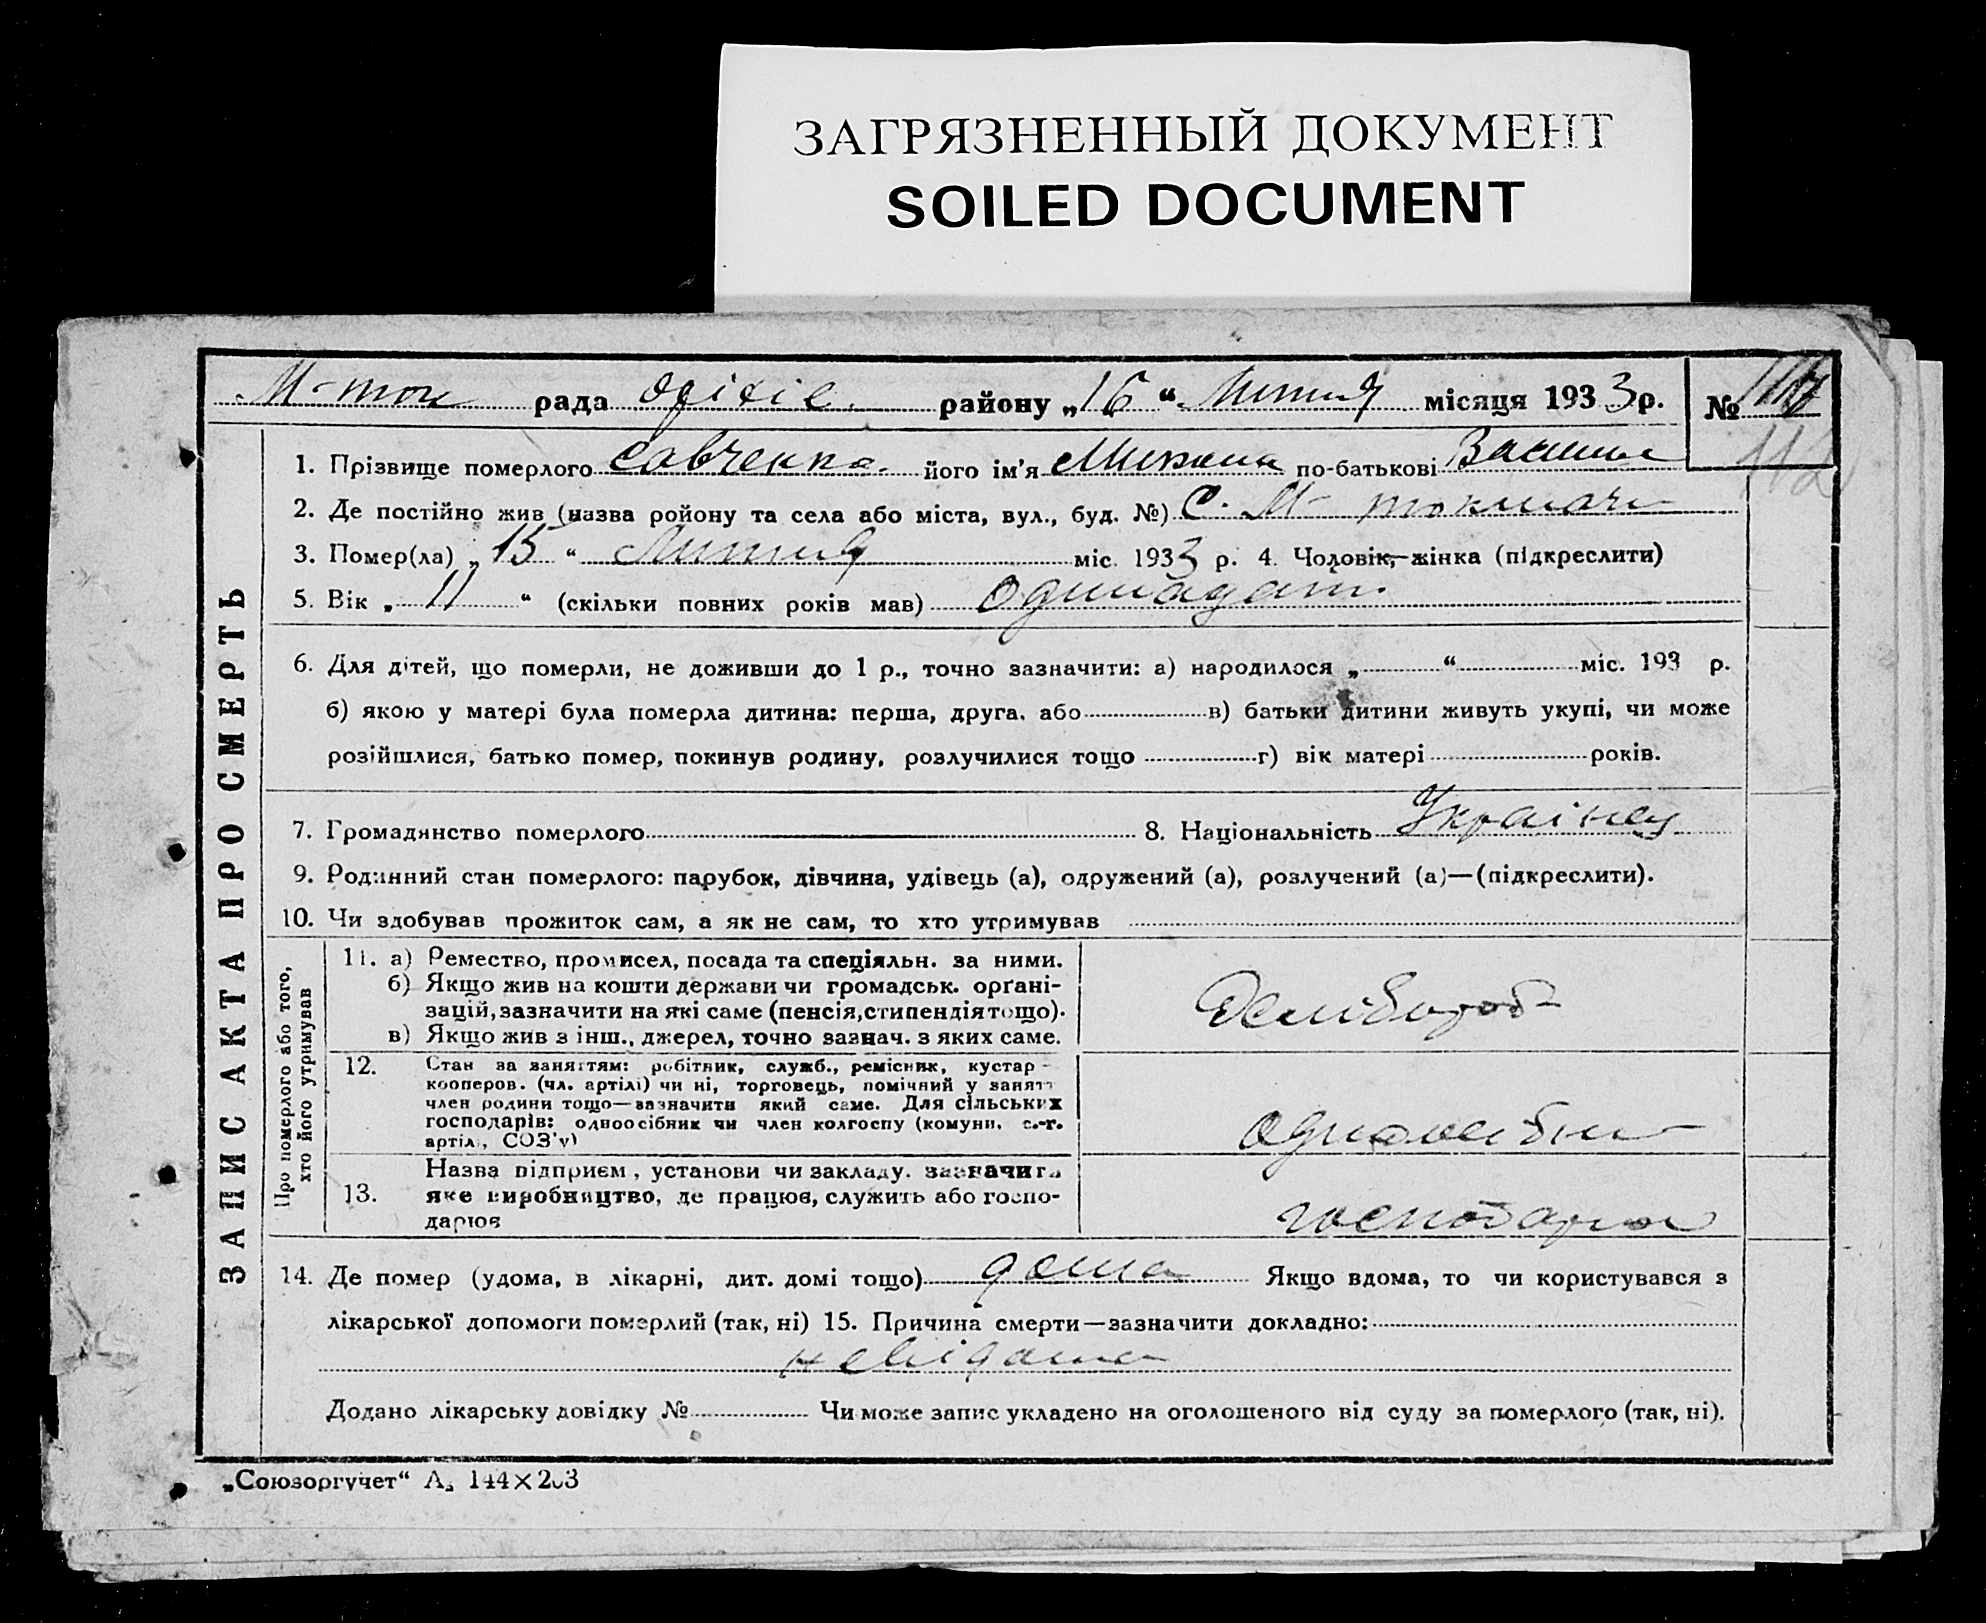 ЗАГРЯЗНЕННЫЙ ДОКУМЕНТ
SOILED DOCUMENT
М-ток рада району „16“ Липня місяця 1933 р. №
112
1. Прізвище померлого Савченко його ім'я Микола по-батькові Васильв
2. Де постійно жив (назва ройону та села або міста, вул., буд. №) С. М-токмач
3. Помер(ла) „15“ Липня міс. 1933 р. 4. Чоловік,—жінка (підкреслити)
5. Вік „11“ (скільки повних років мав) Одинадцят.
6. Для дітей, що померли, не доживши до 1 р., точно зазначити: а) народилося „ “ міс. 193 р.
б) якою у матері була померла дитина: перша, друга, або в) батьки дитини живуть укупі, чи може
розійшлися, батько помер, покинув родину, розлучилися тощо г) вік матері років.
7. Громадянство померлого 8. Національність Українец
9. Родинний стан померлого: парубок, дівчина, удівець (а), одружений (а), розлучений (а)—(підкреслити).
10. Чи здобував прожиток сам, а як не сам, то хто утримував
ЗАПИС АКТА ПРО СМЕРТЬ
Про померлого або того, хто його утримував
11. а) Ремество, промисел, посада та спеціяльн. за ними.
б) Якщо жив на кошти держави чи громадськ. орґані-
зацій, зазначити на які саме (пенсія, стипендія тощо).
в) Якщо жив з інш., джерел, точно зазнач. з яких саме.
Хлібороб
12. Стан за заняттям: робітник, служб., ремісник, кустар-
кооперов. (чл. артілі) чи ні, торговець, помічний у занятт
член родини тощо—зазначити який саме. Для сільських
господарів: одноосібник чи член колгоспу (комуни, с.-г.
артілі, СОЗ'у)
Одноосібник
13. Назва підприєм, установи чи закладу. зазначити
яке виробництво, де працює, служить або госпо-
дарює
господарсв
14. Де помер (удома, в лікарні, дит. домі тощо) дома Якщо вдома, то чи користувався з
лікарської допомоги померлий (так, ні) 15. Причина смерти—зазначити докладно:
невідома
Додано лікарську довідку № Чи може запис укладено на оголошеного від суду за померлого (так, ні).
„Союзоргучет“ А5 144×203